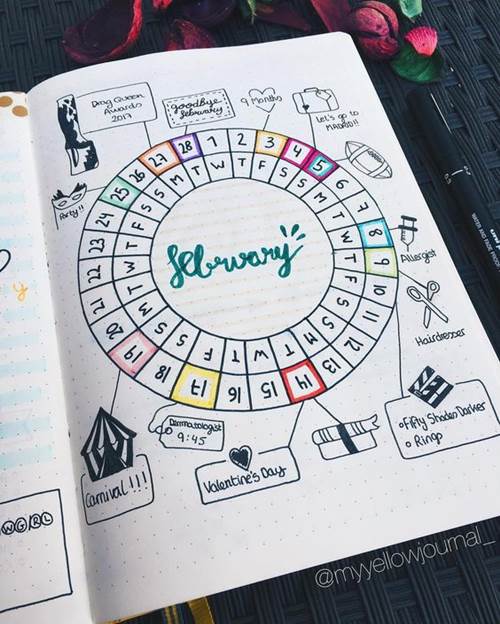 Drag Queen
Awards
2017
goodbye
february
9 Months
Let's go to
MADRID!!
Party!!
1 2 3 4 5 6 7 8 9 10 11 12 13 14 15 16 17 18 19 20 21 22 23 24 25 26 27 28
W T F S S M T W T F S S M T W T F S S M T W T F S S M T
february
Allergist
Hairdresser
• Fifty Shades Darker
• Rings
Dermatologist
9:45
Valentine's Day
Carnival!!!
y
WGRL
0.5
WATER AND FADE PROOF
@myyellowjournal_